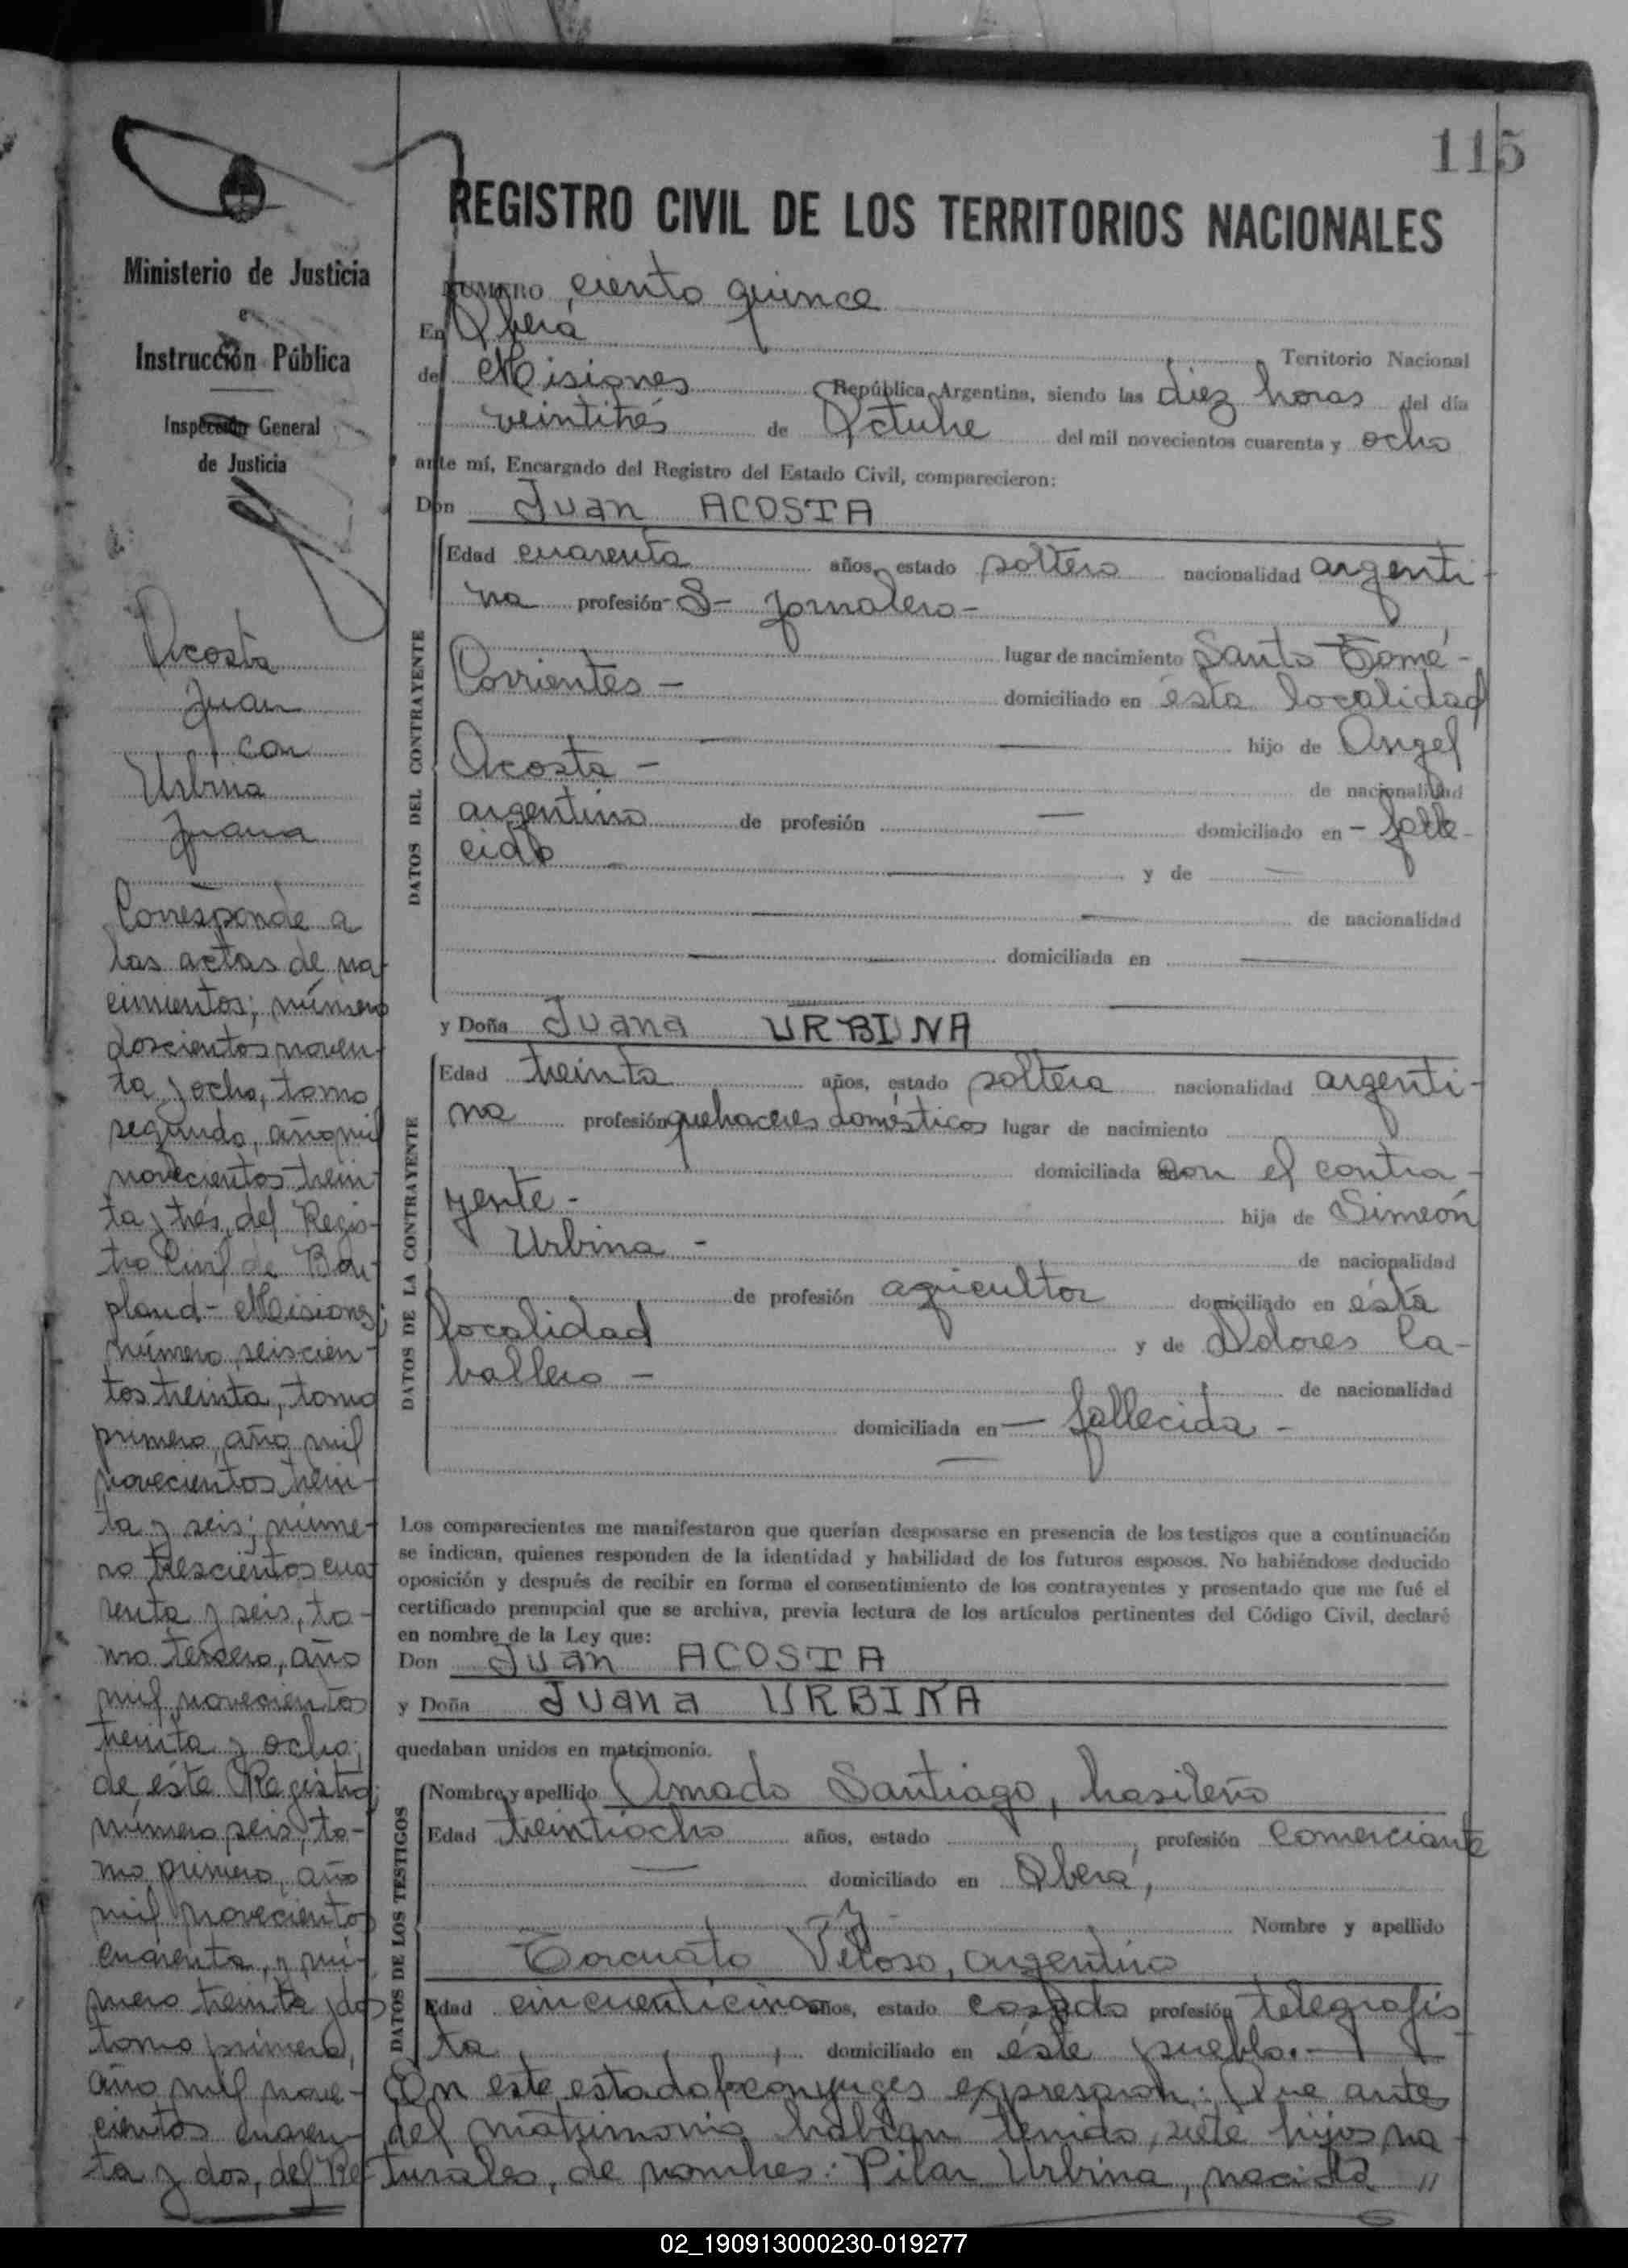 115
Ministerio de Justicia
e
Instrucción Pública
Inspección General
de Justicia
Acosta
Juan
con
Urbina
Juana
Corresponde a
las actas de na-
cimientos; número
doscientos noven-
ta y ocho, tomo
segundo, año mil
novecientos trein-
ta y trés, del Regis-
tro Civil de Bon-
pland - Misiones;
número seiscien-
tos treinta, tomo
primero, año mil
novecientos trein-
ta y seis; núme-
ro trescientos cua-
renta y seis, to-
mo tercero, año
mil novecientos
treinta y ocho;
de éste Registro;
número seis, to-
mo primero, año
mil novecientos
cuarenta, y nú-
mero treinta y dos
tomo primero,
año mil nove-
cientos cuaren-
ta y dos, del Re-
REGISTRO CIVIL DE LOS TERRITORIOS NACIONALES
NUMERO ciento quince
En Oberá Territorio Nacional
de Misiones República Argentina, siendo las diez horas del día
veintitrés de Octubre del mil novecientos cuarenta y ocho
ante mí, Encargado del Registro del Estado Civil, comparecieron:
Don Juan ACOSTA
DATOS DEL CONTRAYENTE
Edad cuarenta años, estado soltero nacionalidad argenti-
na profesión -S- jornalero-
lugar de nacimiento Santo Tomé-
Corrientes - domiciliado en ésta localidad
hijo de Angel
Acosta - de nacionalidad
argentino de profesión — domiciliado en - falle-
cido - y de —
de nacionalidad
domiciliada en
y Doña Juana URBINA
DATOS DE LA CONTRAYENTE
Edad treinta años, estado soltera nacionalidad argenti-
na profesión quehaceres domésticos lugar de nacimiento
domiciliada con el contra-
yente - hija de Simeón
Urbina - de nacionalidad
de profesión agricultor domiciliado en ésta
localidad y de Dolores Ca-
ballero - de nacionalidad
domiciliada en — fallecida -
Los comparecientes me manifestaron que querían desposarse en presencia de los testigos que a continuación
se indican, quienes responden de la identidad y habilidad de los futuros esposos. No habiéndose deducido
oposición y después de recibir en forma el consentimiento de los contrayentes y presentado que me fué el
certificado prenupcial que se archiva, previa lectura de los artículos pertinentes del Código Civil, declaré
en nombre de la Ley que:
Don Juan ACOSTA
y Doña Juana URBINA
quedaban unidos en matrimonio.
DATOS DE LOS TESTIGOS
Nombre y apellido Amado Santiago, brasileño
Edad treintiocho años, estado , profesión Comerciante
— domiciliado en Oberá,
y- Nombre y apellido
Torcuato Veloso, argentino
Edad cincuenticinco años, estado casado profesión telegrafis
ta , domiciliado en éste pueblo.-
En este estado los conyuges expresaron: Que antes
del matrimonio habían tenido, siete hijos na-
turales, de nombres: Pilar Urbina, nacida "
02_190913000230-019277